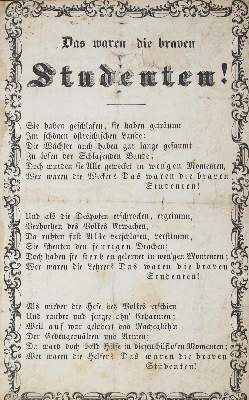 Das waren die braven
Studenten!
Sie haben geschlafen, sie haben geträumt
Im schönen östreichischen Lande;
Die Wächter auch haben gar lange gesäumt
Zu lösen der Schlafenden Bande;
Doch wurden sie Alle geweckt in wenigen Momenten,
Wer waren die Wecker? Das waren die braven
Studenten!
Und als die Despoten erschrocken, ergrimmt,
Verboten des Volkes Erwachen,
Da ruhten fast Alle verschlafen, verstimmt,
Sie scheuten den feurigen Drachen;
Doch haben sie sterben gelernet in wenigen Momenten;
Wer waren die Lehrer? Das waren die braven
Studenten!
Als wieder die Hefe des Volkes erschien
Und raubte und sengte ohn' Erbarmen;
Weil auf war gelodert das Rachegefühl
Der Gedrangsalten und Armen;
Da ward doch bald Hilfe in diesen Momenten;
Wer waren die Helfer? Das waren die braven
Studenten!